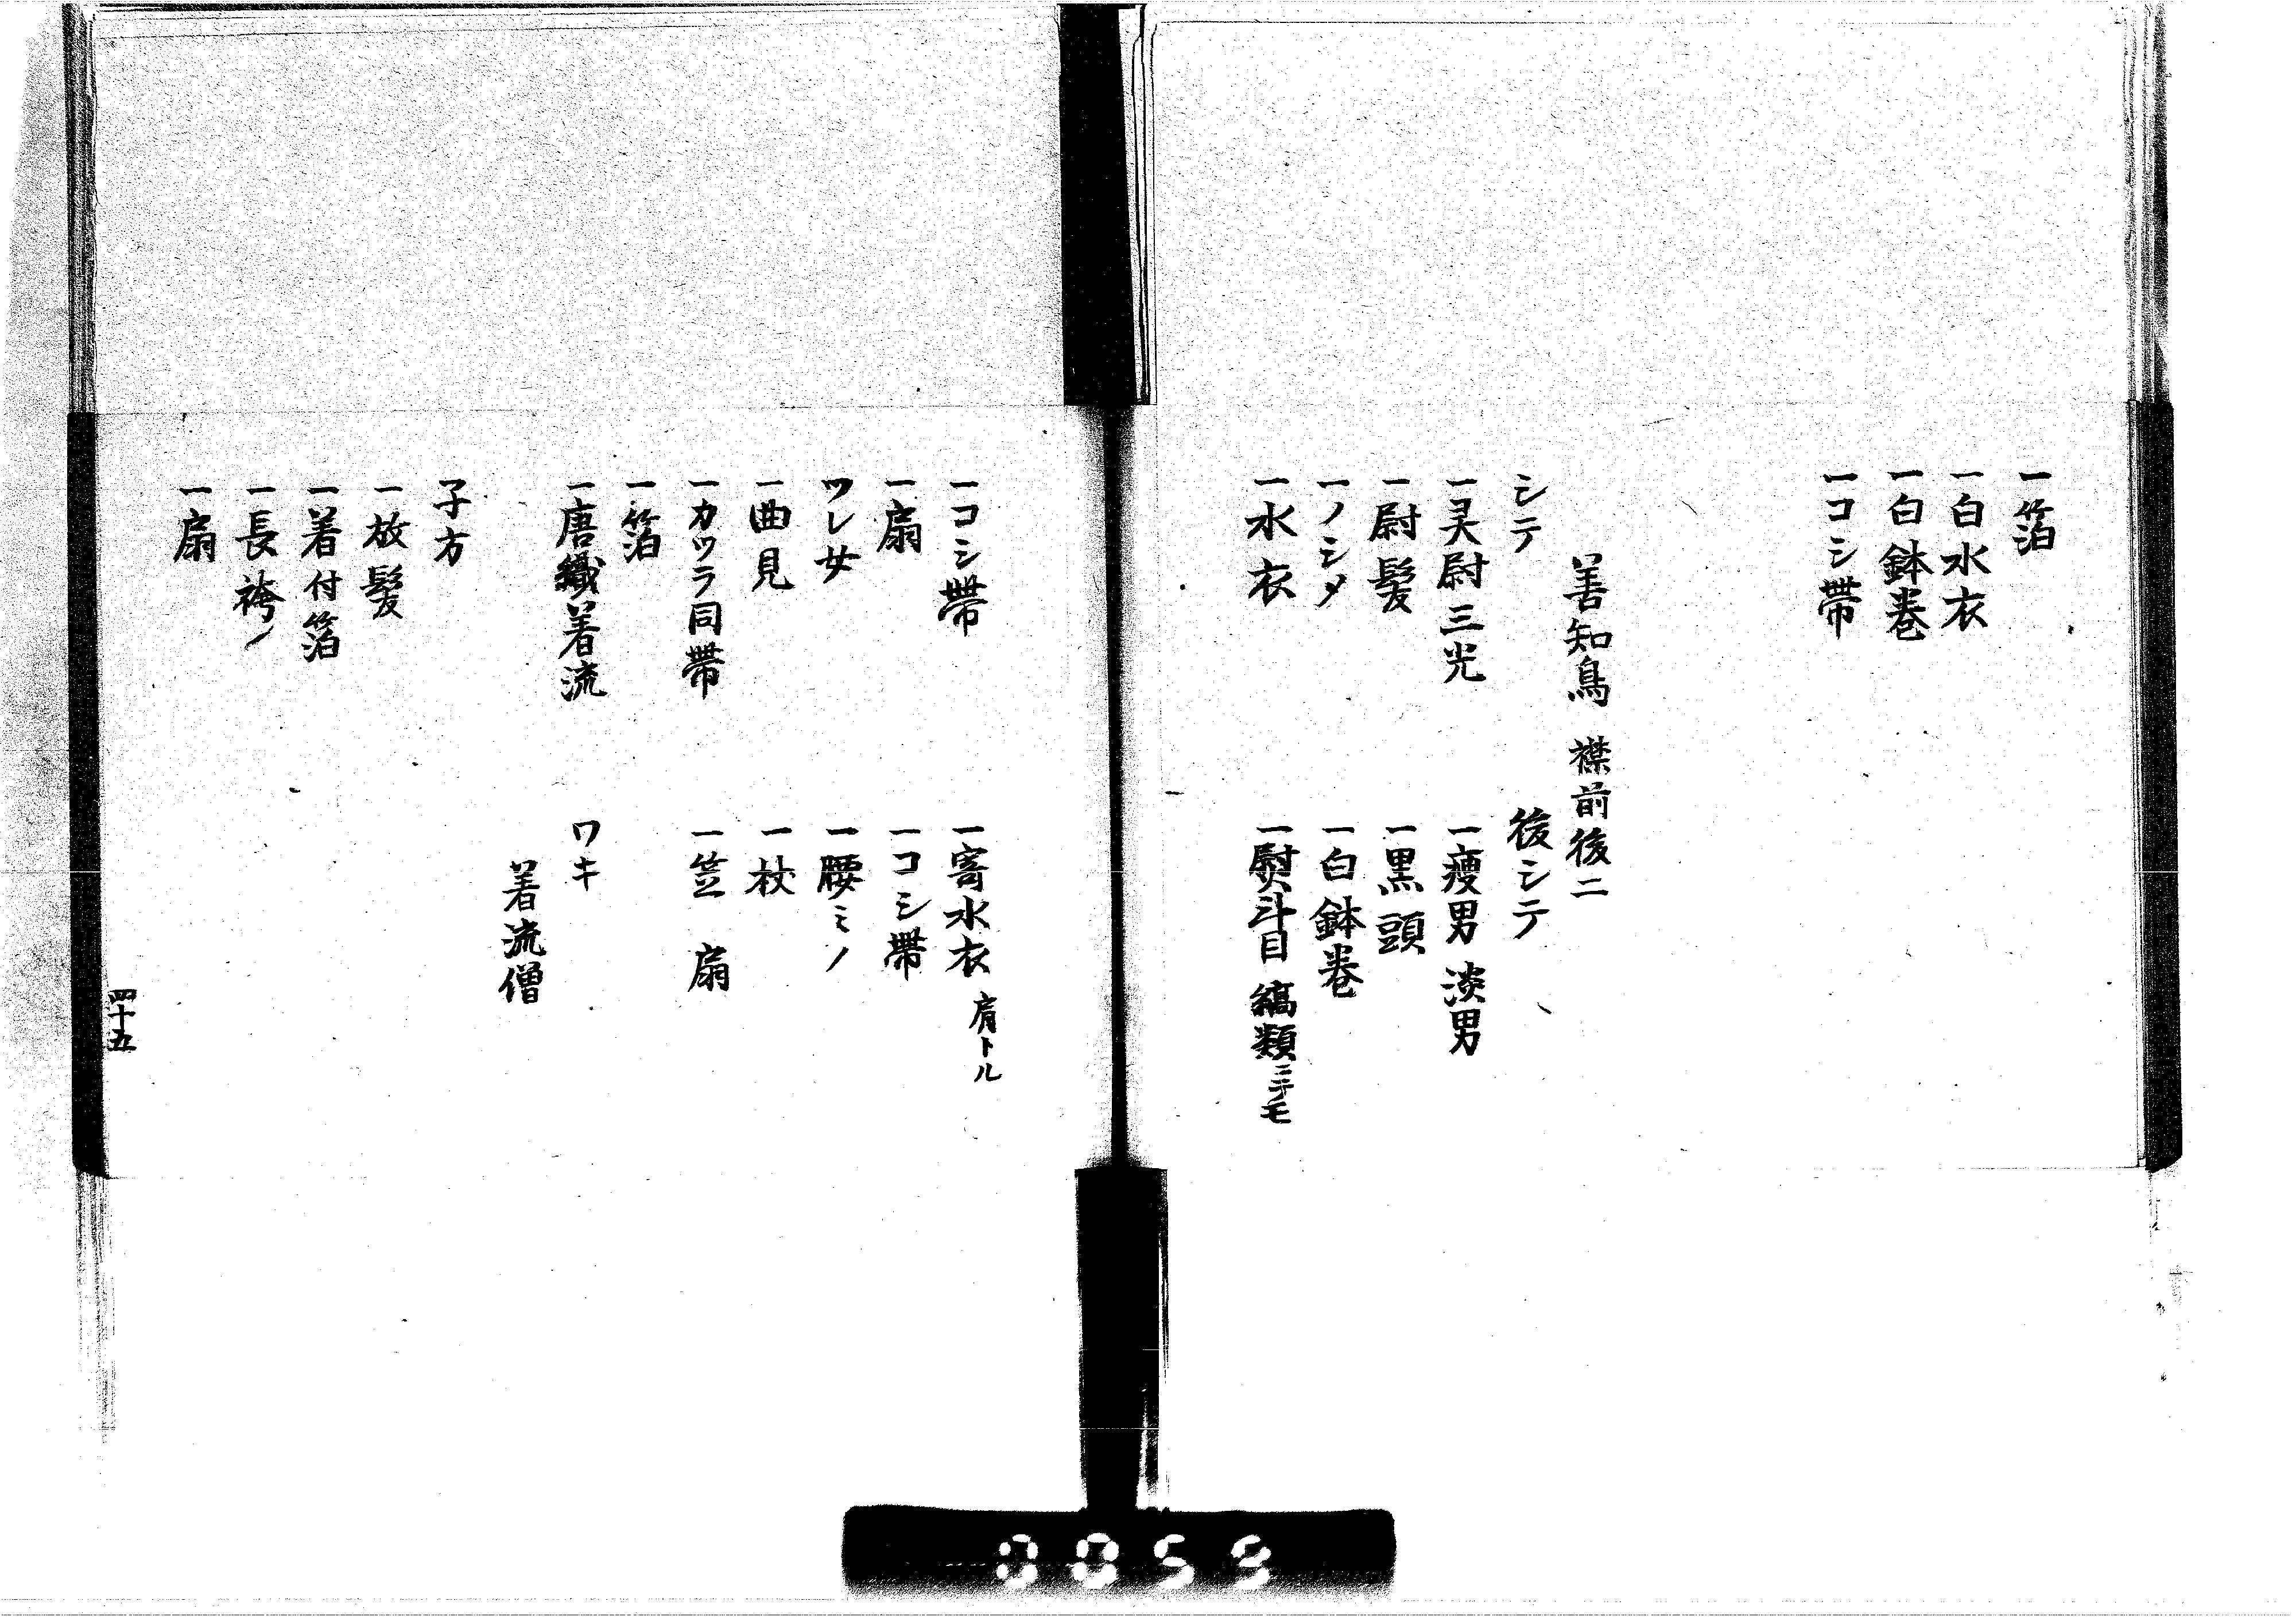 一箔
一白水衣
一白鉢巻
一コシ帯
善知鳥 襟前後二
シテ
一灵尉三光
一尉髪
一ノシメ
一水衣
後シテ
一痩男 淡男
一黒頭
一白鉢巻
一熨斗目 縞類ニテモ
一コシ帯
一扇
ツレ女
一曲見
一カツラ同帯
一箔
一唐織着流
一寄水衣 肩トル
一コシ帯
一腰ミノ
一杖
一笠 扇
ワキ
着流僧
子方
一放髪
一着付箔
一長袴ノ
一扇
四十五